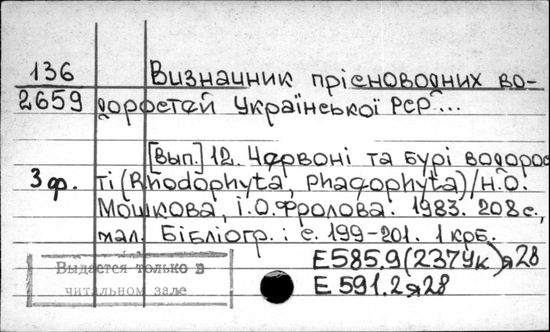 136
2659
Визначник прісноводних во-
доростей Української РСР...
3 ф.
[Вип.] 12. Червоні та бурі водорос
ті (Rhodophyta, Phaeophyta)/Н.О.
Мошкова, І.О.Фролова. 1983. 208 с.,
мал. Бібліогр.: с. 199-201. 1 крб.
Е585.9(237Ук)я28
Е 591.2я28
Выдается только в
читальном зале